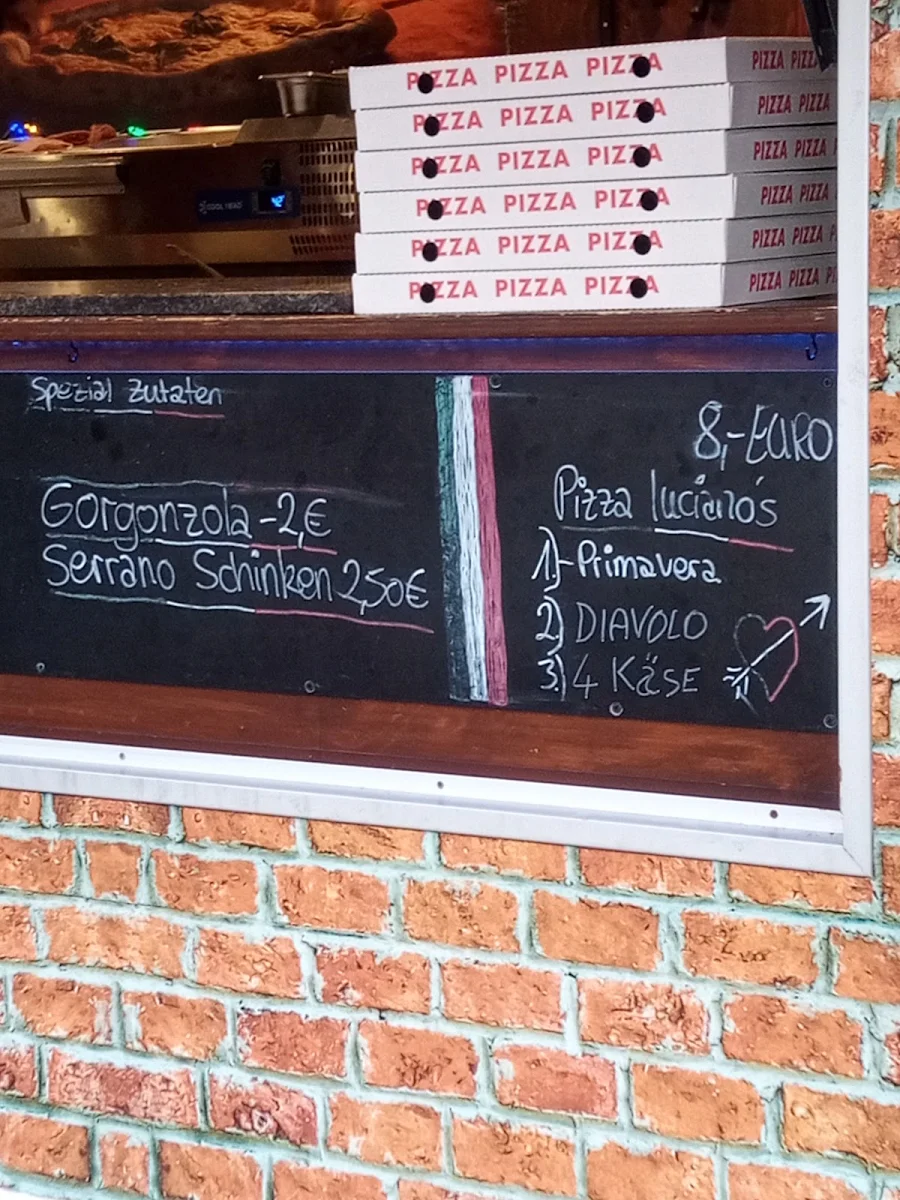 PIZZA PIZZA PIZZA PIZZA PIZZA
PIZZA PIZZA PIZZA PIZZA PIZZA
PIZZA PIZZA PIZZA PIZZA PIZZA
PIZZA PIZZA PIZZA PIZZA PIZZA
PIZZA PIZZA PIZZA PIZZA PIZZA
PIZZA PIZZA PIZZA PIZZA PIZZA
COOL HEAD
Spezial Zutaten
Gorgonzola - 2,€
Serrano Schinken 2,50€
8,- EURO
Pizza luciano's
1.)- Primavera
2) DIAVOLO
3.) 4 KäSE